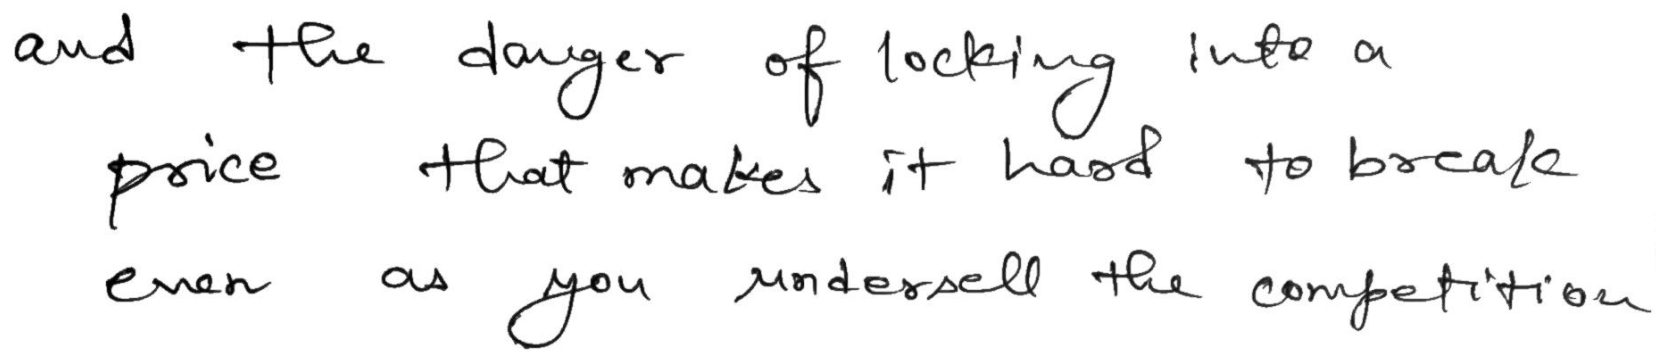 and the danger of locking into a
price that makes it hard to break
even as you undersell the competition